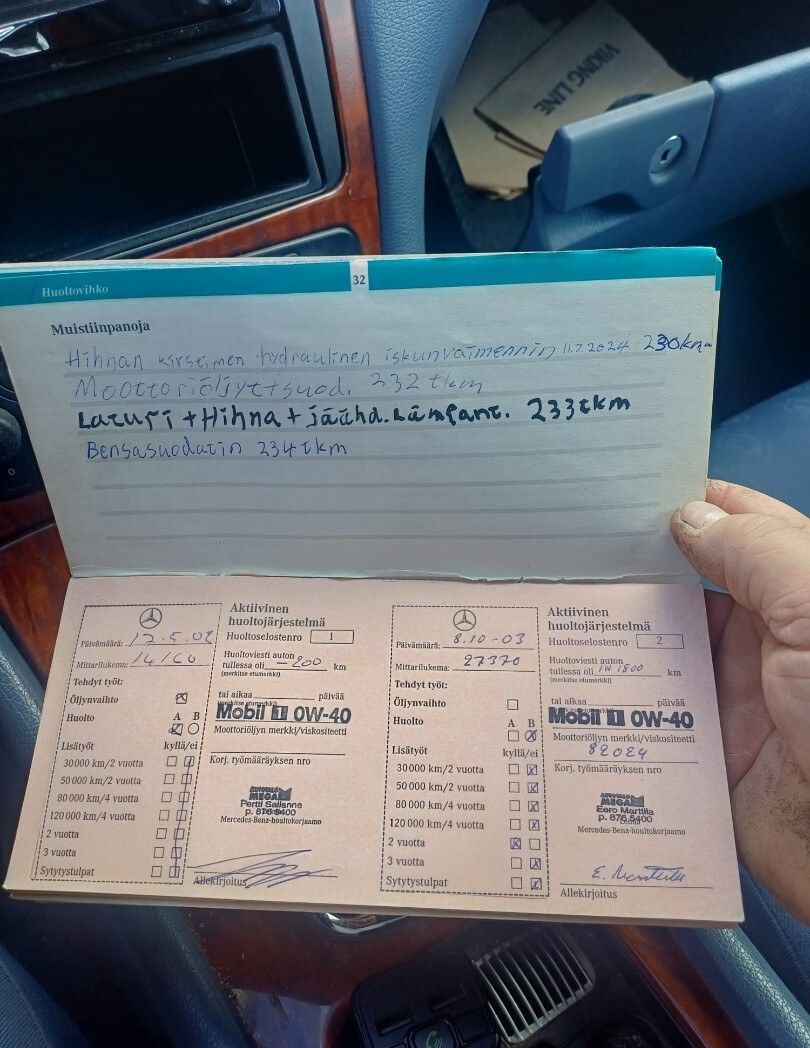 VIKING LINE
Huoltovihko
32
Muistiinpanoja
Hihnan kiristimen hydraulinen iskunvaimennin 11.7.2024 230km
Moottoriöljyt+suod. 232 tkm
Laturi + Hihna + jäähd. Lämpant. 233tkm
Bensasuodatin 234tkm
Päivämäärä: 17.5.02
Mittarilukema: 14160
Tehdyt työt:
Öljynvaihto
A B
Huolto
Lisätyöt kyllä/ei
30 000 km/2 vuotta
50 000 km/2 vuotta
80 000 km/4 vuotta
120 000 km/4 vuotta
2 vuotta
3 vuotta
Sytytystulpat
Aktiivinen
huoltojärjestelmä
Huoltoselostenro 1
Huoltoviesti auton
tullessa oli -200 km
(merkitse etumerkki)
tai aikaa päivää
Mobil 1 0W-40
Moottoriöljyn merkki/viskositeetti
Korj. työmääräyksen nro
AUTOTALO
MEGA
Pertti Sallanne
p. 876 5400
Mercedes-Benz-huoltokorjaamo
Allekirjoitus
Päivämäärä: 8.10-03
Mittarilukema: 27370
Tehdyt työt:
Öljynvaihto
A B
Huolto
Lisätyöt kyllä/ei
30 000 km/2 vuotta
50 000 km/2 vuotta
80 000 km/4 vuotta
120 000 km/4 vuotta
2 vuotta
3 vuotta
Sytytystulpat
Aktiivinen
huoltojärjestelmä
Huoltoselostenro 2
Huoltoviesti auton
tullessa oli 1800 km
(merkitse etumerkki)
tai aikaa päivää
Mobil 1 0W-40
Moottoriöljyn merkki/viskositeetti
82024
Korj. työmääräyksen nro
AUTOTALO
MEGA
Eero Marttila
p. 876 5400
Mercedes-Benz-huoltokorjaamo
Allekirjoitus